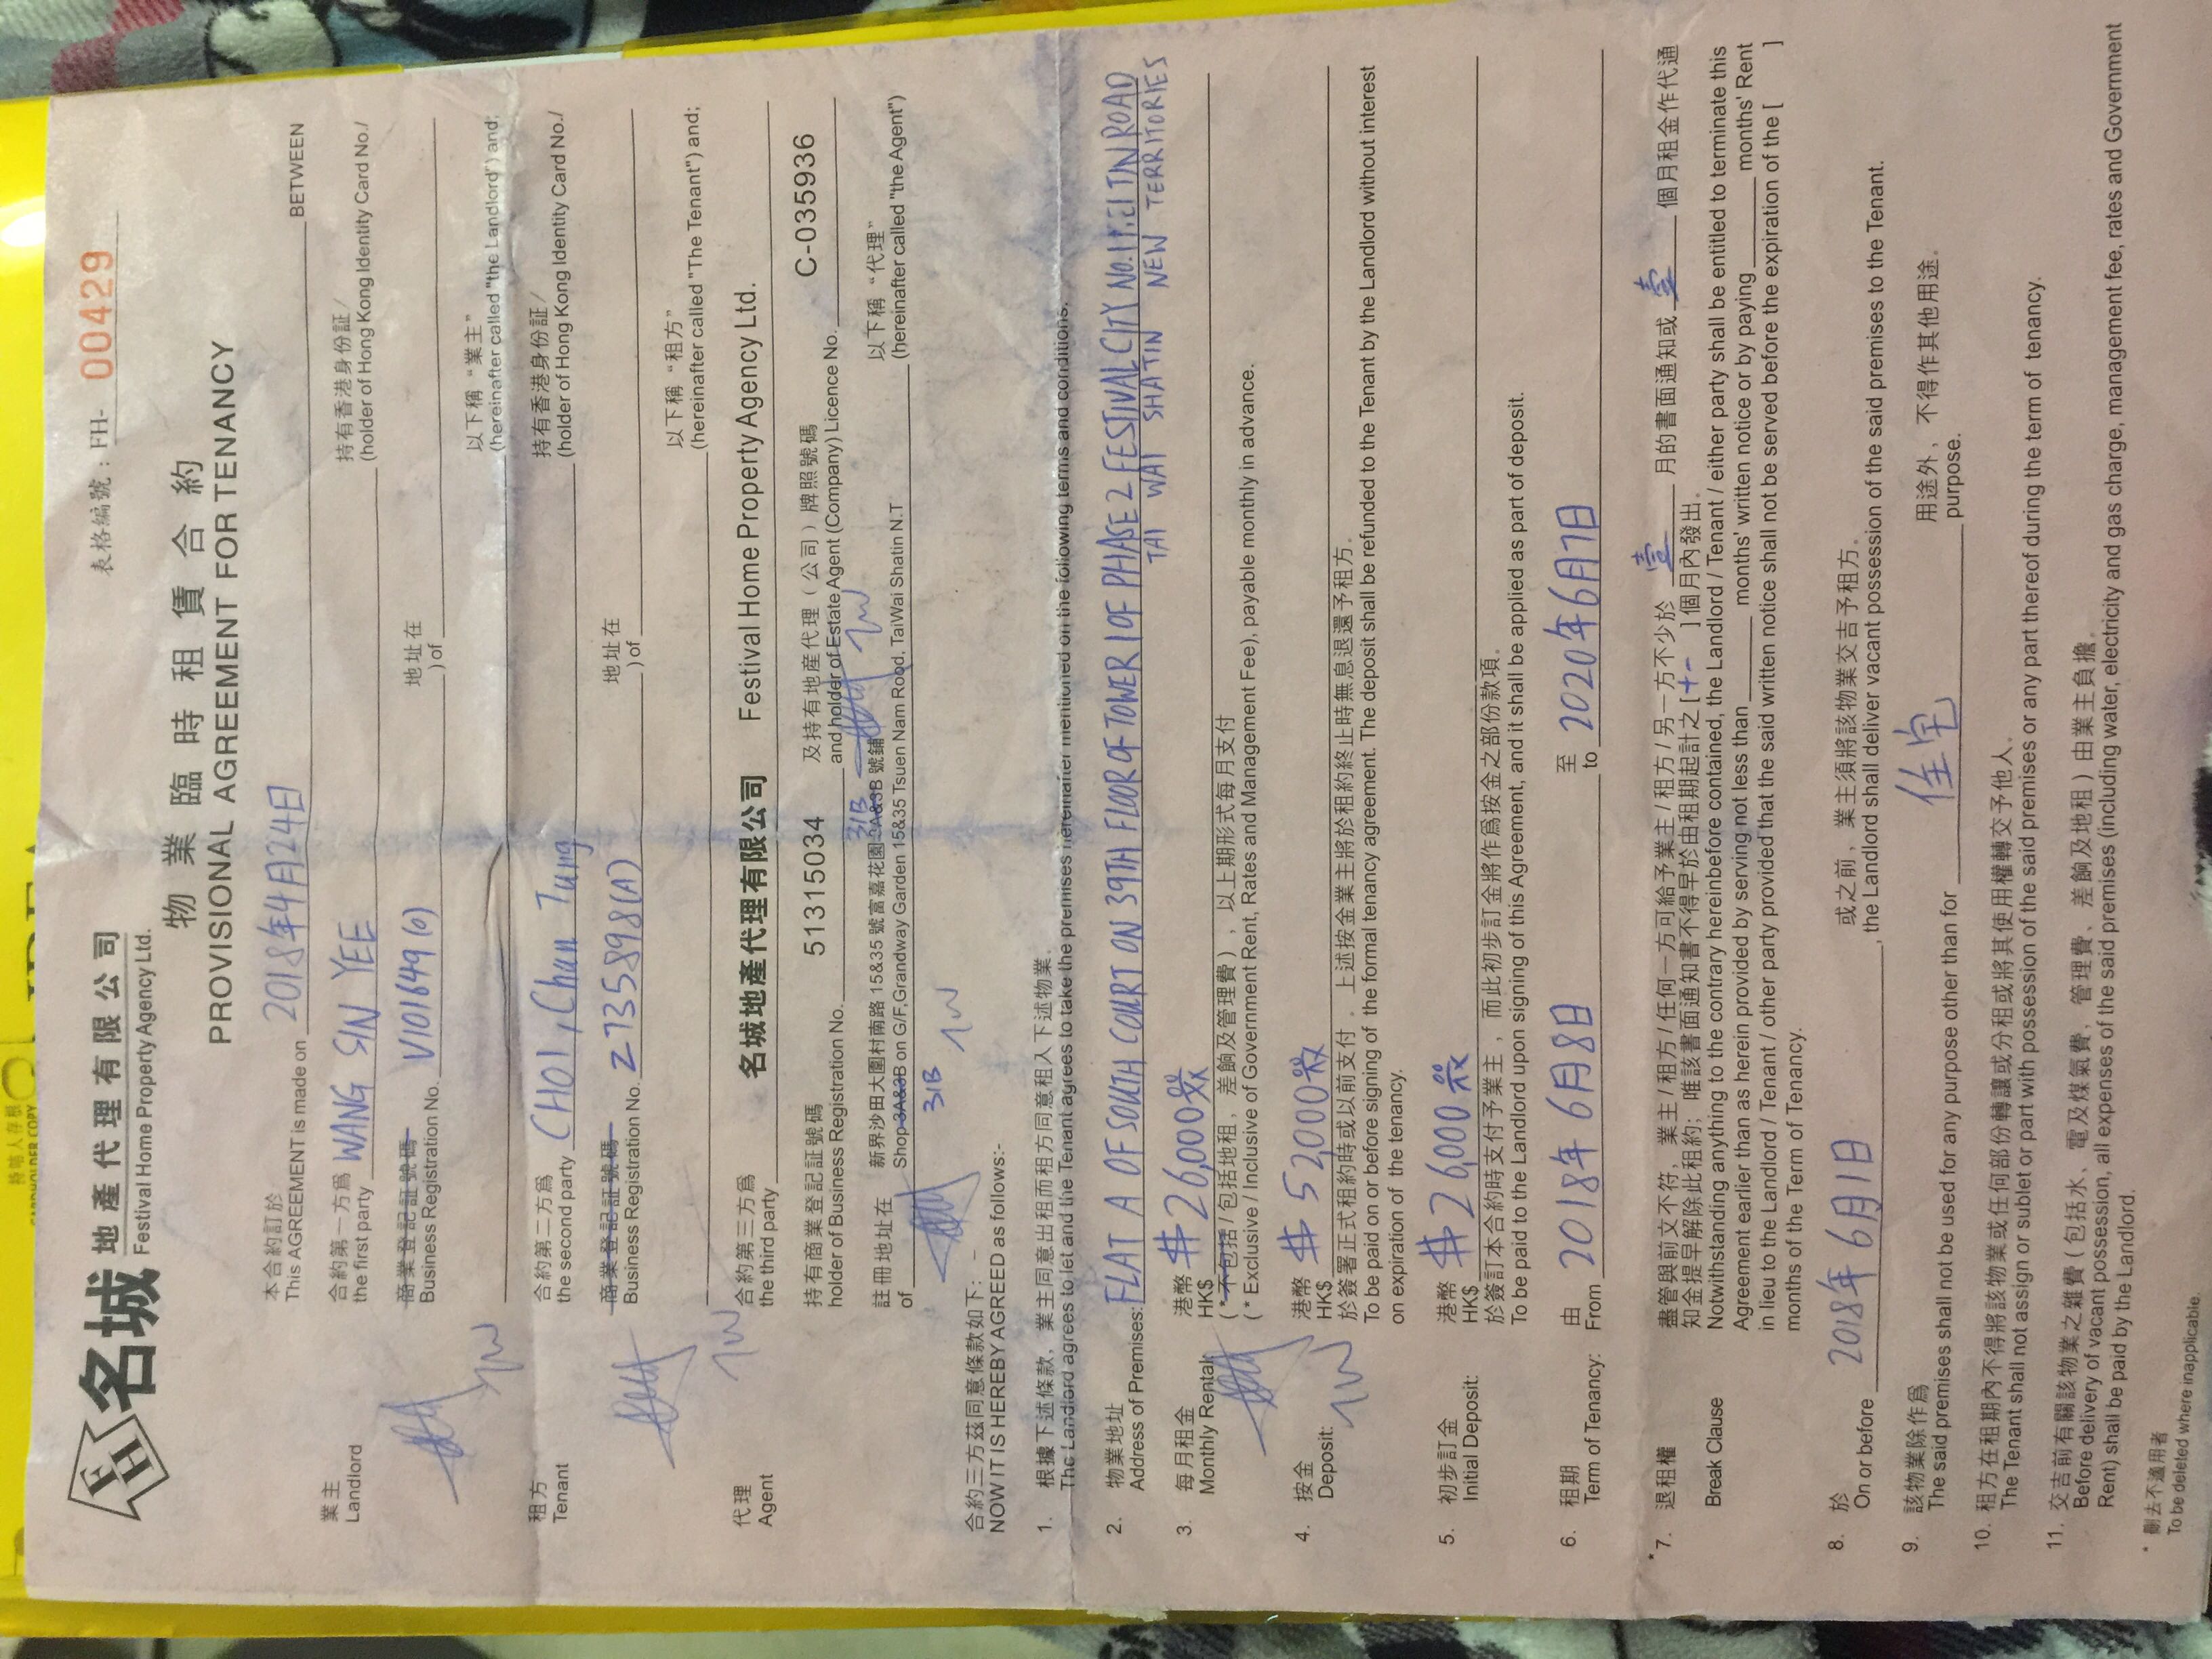 持咭人存根
CARDHOLDER COPY
FH
名城 地產代理有限公司
Festival Home Property Agency Ltd.
表格編號：FH- 00429
物業臨時租賃合約
PROVISIONAL AGREEMENT FOR TENANCY
本合約訂於
This AGREEMENT is made on 2018年4月24日 BETWEEN
業主 合約第一方爲 持有香港身份証/
Landlord the first party WANG SIN YEE (holder of Hong Kong Identity Card No./
商業登記証號碼 地址在
Business Registration No. V101649(0) ) of
以下稱 “業主”
(hereinafter called "the Landlord") and;
租方 合約第二方爲 持有香港身份証/
Tenant the second party CHOI, Chun Tung (holder of Hong Kong Identity Card No./
商業登記証號碼 地址在
Business Registration No. Z735898(A) ) of
以下稱 “租方”
(hereinafter called "The Tenant") and;
代理 合約第三方爲
Agent the third party 名城地產代理有限公司 Festival Home Property Agency Ltd.
持有商業登記証號碼 及持有地產代理（公司）牌照號碼
holder of Business Registration No. 51315034 and holder of Estate Agent (Company) Licence No. C-035936
31B
註冊地址在 新界沙田大圍村南路 15&35 號富嘉花園 3A&3B 號鋪 以下稱 “代理”
of Shop 3A&3B on G/F,Grandway Garden 15&35 Tsuen Nam Rood, TaiWai Shatin N.T (hereinafter called "the Agent")
31B
合約三方茲同意條款如下：–
NOW IT IS HEREBY AGREED as follows:-
1. 根據下述條款，業主同意出租而租方同意租入下述物業.
The Landlord agrees to let and the Tenant agrees to take the premises hereinafter mentioned on the following terms and conditions.
2. 物業地址
Address of Premises: FLAT A OF SOUTH COURT ON 39TH FLOOR OF TOWER 1 OF PHASE 2 FESTIVAL CITY NO.1 MEI TIN ROAD
TAI WAI SHATIN NEW TERRITORIES
3. 每月租金 港幣
Monthly Rental: HK$ $26,000
(*不包括/包括地租，差餉及管理費)，以上期形式每月支付
(* Exclusive / Inclusive of Government Rent, Rates and Management Fee), payable monthly in advance.
4. 按金 港幣
Deposit: HK$ $52,000
於簽署正式租約時或以前支付．上述按金業主將於租約終止時無息退還予租方．
To be paid on or before signing of the formal tenancy agreement. The deposit shall be refunded to the Tenant by the Landlord without interest
on expiration of the tenancy.
5. 初步訂金 港幣
Initial Deposit: HK$ $26,000
於簽訂本合約時支付予業主，而此初步訂金將作爲按金之部份款項．
To be paid to the Landlord upon signing of this Agreement, and it shall be applied as part of deposit.
6. 租期 由 至
Term of Tenancy: From 2018年6月8日 to 2020年6月7日
*7. 退租權 盡管與前文不符，業主/租方/任何一方可給予業主/租方/另一方不少於 壹 月的書面通知或 壹 個月租金作代通
知金提早解除此租約；唯該書面通知書不得早於由租期起計之[十一]個月內發出．
Break Clause Notwithstanding anything to the contrary hereinbefore contained, the Landlord / Tenant / either party shall be entitled to terminate this
Agreement earlier than as herein provided by serving not less than months' written notice or by paying months' Rent
in lieu to the Landlord / Tenant / other party provided that the said written notice shall not be served before the expiration of the [ ]
months of the Term of Tenancy.
8. 於 或之前，業主須將該物業交吉予租方．
On or before 2018年6月1日, the Landlord shall deliver vacant possession of the said premises to the Tenant.
9. 該物業除作爲 用途外，不得作其他用途．
The said premises shall not be used for any purpose other than for 住宅 purpose.
10. 租方在租期內不得將該物業或任何部份轉讓或分租或將其使用權轉交予他人．
The Tenant shall not assign or sublet or part with possession of the said premises or any part thereof during the term of tenancy.
11. 交吉前有關該物業之雜費(包括水、電及煤氣費，管理費、差餉及地租)由業主負擔．
Before delivery of vacant possession, all expenses of the said premises (including water, electricity and gas charge, management fee, rates and Government
Rent) shall be paid by the Landlord.
* 刪去不適用者
To be deleted where inapplicable.